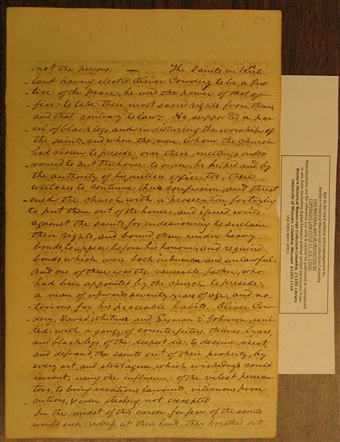 not the persons. — The Saints in Kirt
land having elected Oliver Cowdery to be a jus-
tice of the peace, he used the power of that of-
fice to take their most sacred rights from them,
and that contrary to law. He supported a par-
cel of blacklegs, and in disturbing the worship of
the saints, and when the men whom the church
had chosen to preside over their meetings endea-
voured to put the house to order, he helped and by
the authority of his justices office too, these
wretches to continue their confusion, and threat
ened the church with a prosecution for trying
to put them out of the house, and issued writs
against the saints for endeavouring to sustain
their rights, and bound them under heavy
bonds to appear before his honour, and required
bonds which were both inhuman and unlawful.
And one of these was the venerable father, who
had been appointed by the church to preside,
a man of upwards seventy years of age, and no-
torious for his peaceable habits. Oliver Cow-
dery, David Whitmer and Lyman E. Johnson, uni-
ted with a gang of counterfeiters, thieves, lyars,
and blacklegs of the deepest die, to deceive, cheat,
and defraud the saints out of their property, by
every art, and stratagem, which wickedness could
invent, using the influence of the vilest persecu-
tors, to bring vexatious lawsuits, villainous prose
cutions, & even stealing not excepted.
In the midst of this career for fear of the saints
would seek redress at their hands, they breathed out